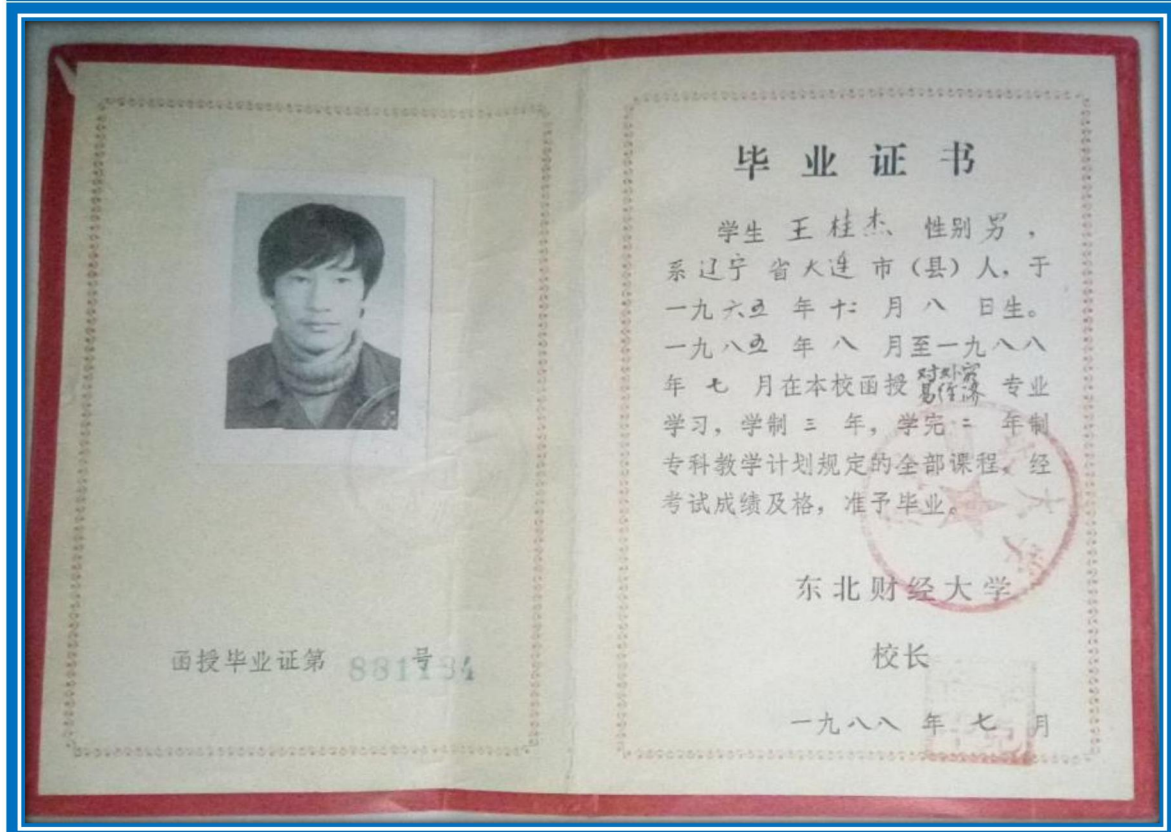 函授毕业证第 881134 号
毕业证书
学生 王桂杰 性别 男，
系辽宁省大连市（县）人，于
一九六五年十二月八日生。
一九八五年八月至一九八八
年七月在本校函授对外贸易经济专业
学习，学制三年，学完二年制
专科教学计划规定的全部课程，经
考试成绩及格，准予毕业。
东北财经大学
校长
一九八八年七月